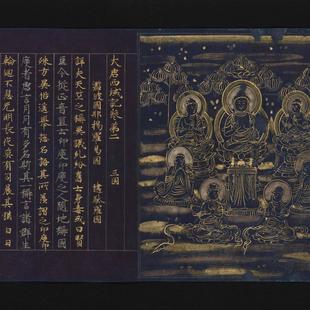 大唐西域記卷第二　三國
濫波國　那揭羅曷國　健馱羅國
詳夫天竺之稱異議糺紛舊云身毒或曰賢
豆今從正音宜云印度印度之人隨地稱國
殊方異俗遙舉總名語其所美謂之印度印
度者唐言月月有多名斯其一稱言諸群生
輪迴不息無明長夜莫有司晨其猶白日